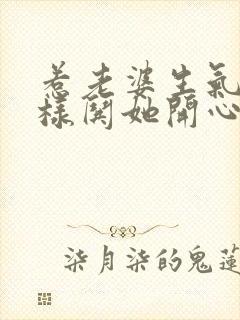 惹老婆生氣
樣鬨她開心
柒月柒的鬼蓮